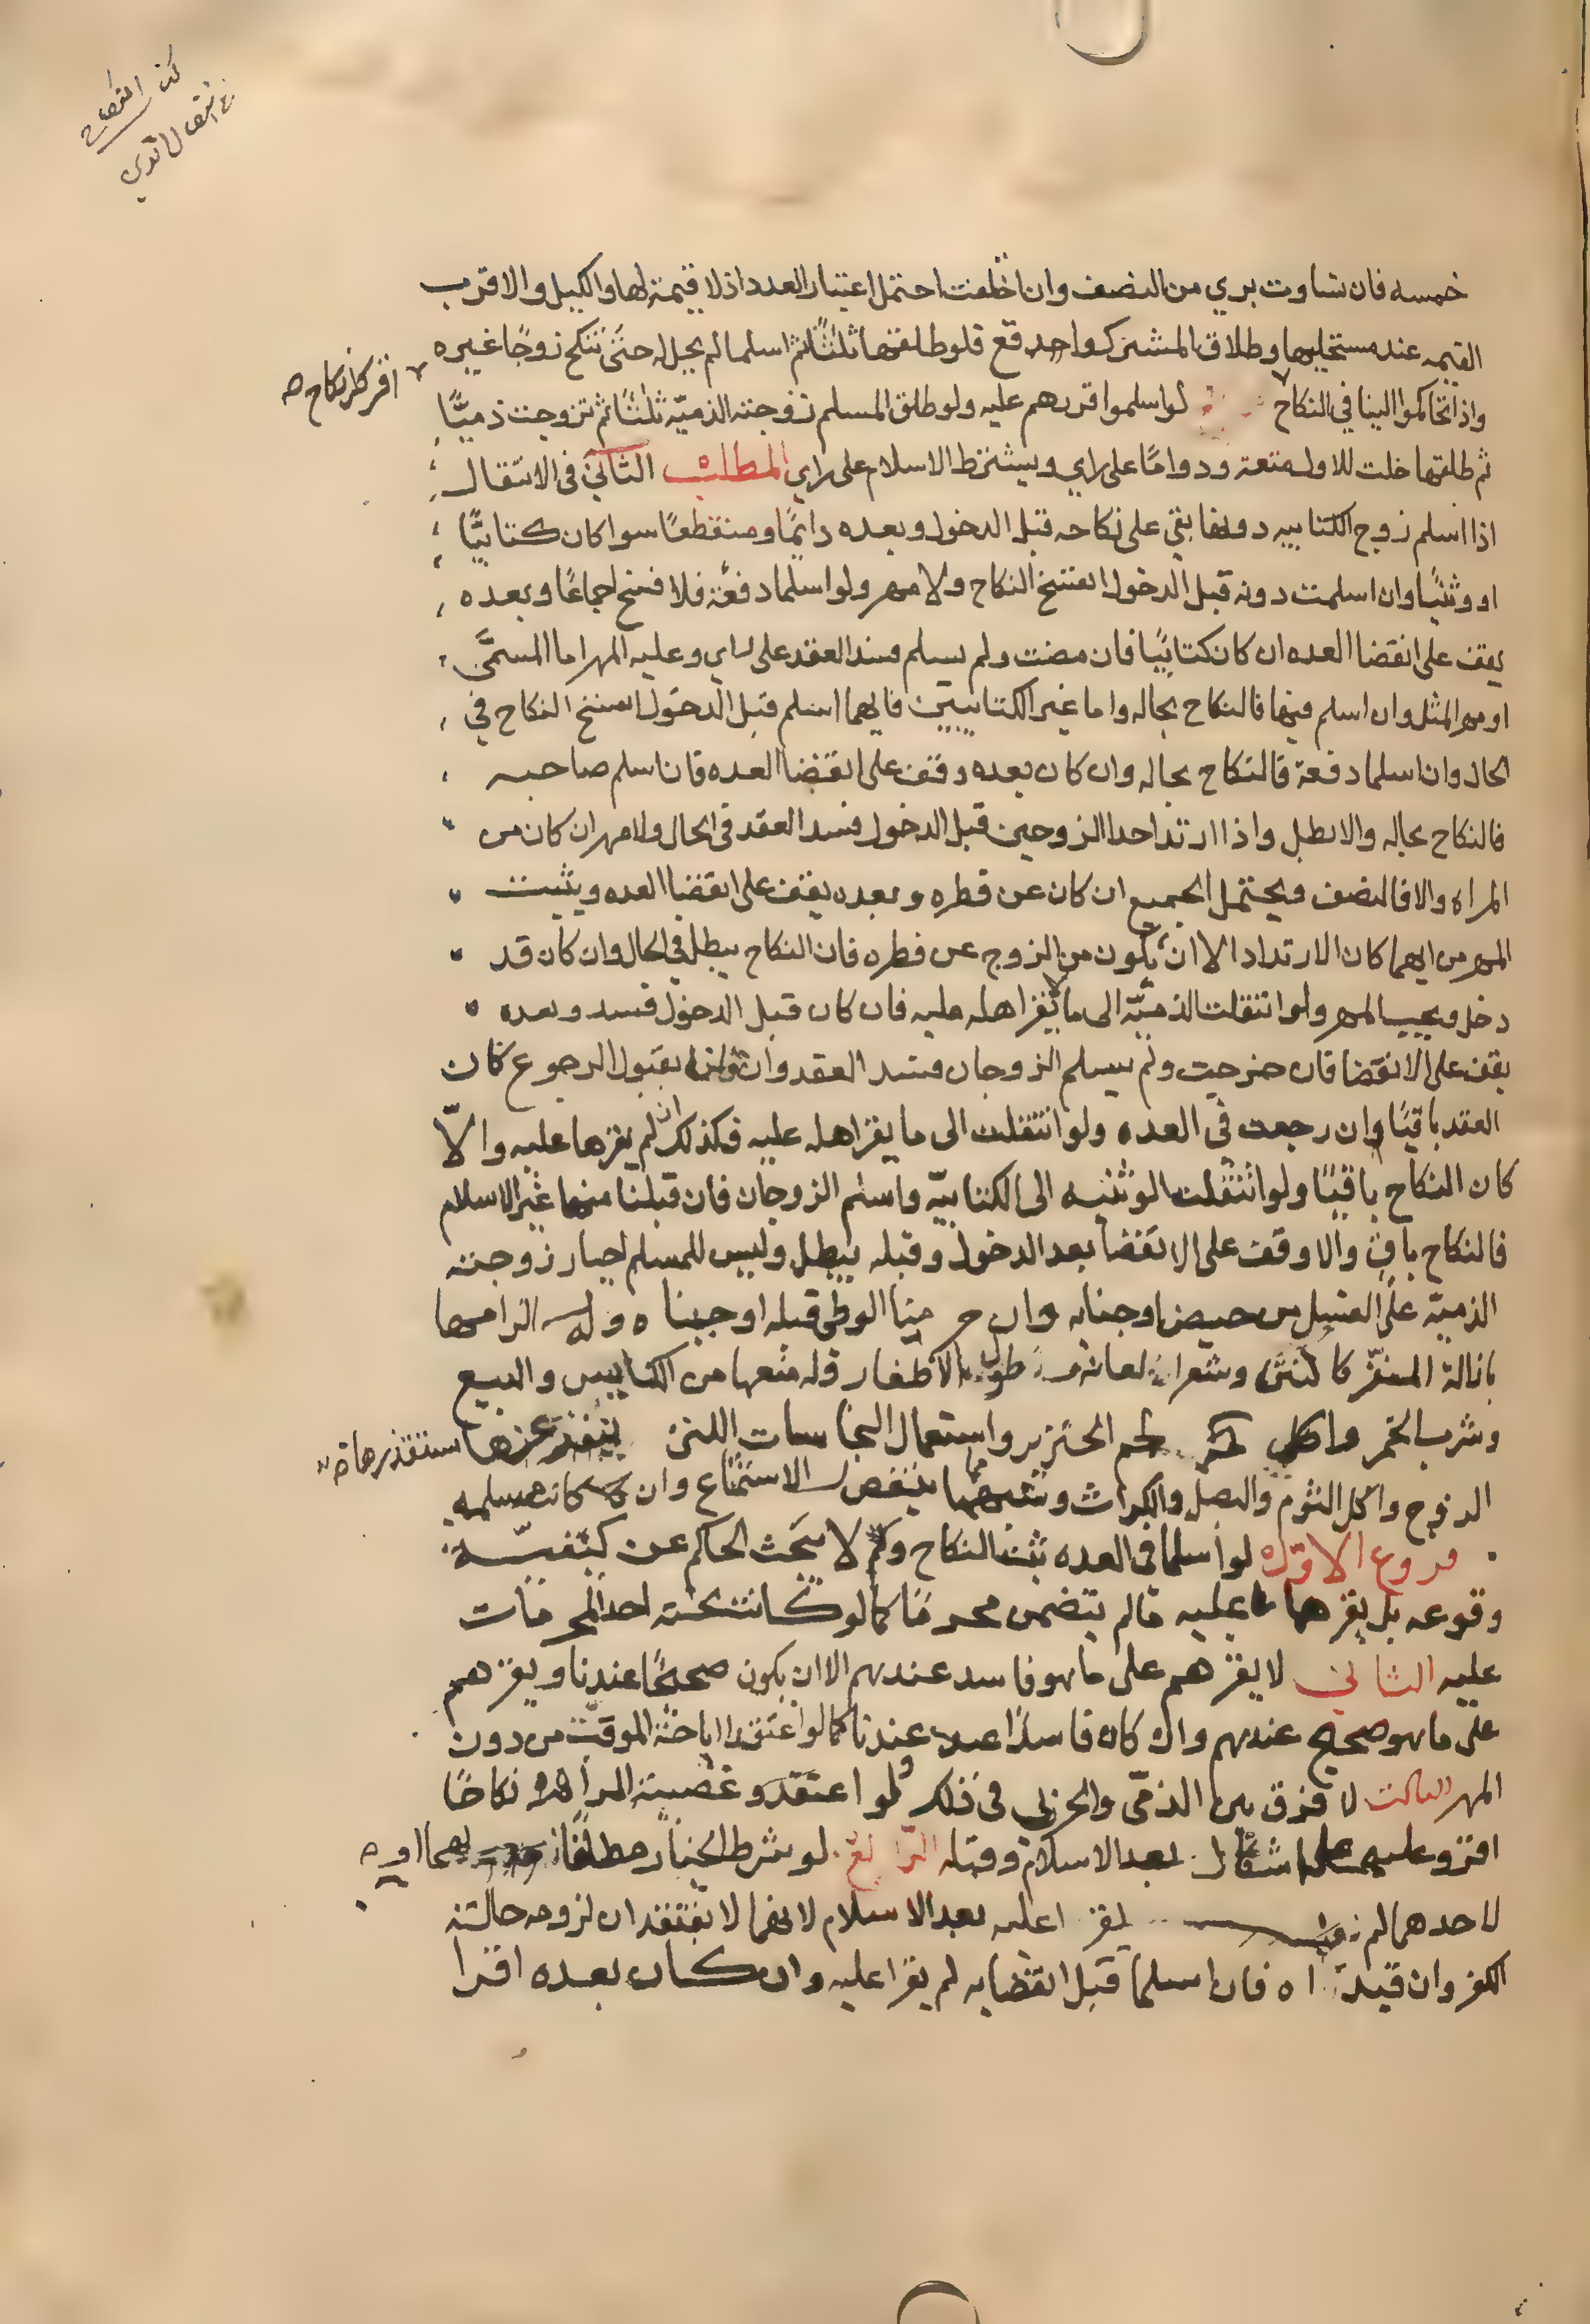 خمسه فان تساوت بري من النصف وان اختلفت احتمل اعتبار العدد اذ لا قيمة لها والكيل والاقرب
القيمه عند مستحليها وطلاق المشرك واحد قع فلو طلقها ثلثا ثم اسلما لم يحل له حتى تنكح زوجًا غيره
واذا تحاكموا الينا في النكاح لو اسلموا اقررهم عليه ولو طلق المسلم زوجته الذميّه ثلثًا ثم تزوجت ذميًّا
اقر كل نكاح صه
ثم طلقها حلت للاول متعة ودوامًا على راي ويشترط الاسلام على راي المطلب الثاني في الانتقال
اذا اسلم زوج الكتابيه دونها بقى على نكاحه قبل الدخول وبعده دايمًا ومنقطعًا سوا كان كتابيًّا
او وثنيًا وان اسلمت دونه قبل الدخول انفسخ النكاح ولا مهر ولو اسلما دفعة فلا فسخ اجماعًا وبعده
يقف على انقضا العده ان كان كتابيًا فان مضت ولم يسلم فسد العقد على راي وعليه المهر اما المسمّى
او مهر المثل وان اسلم فيها فالنكاح بحاله واما غير الكتابيين فايهما اسلم قبل الدخول انفسخ النكاح في
الحال وان اسلما دفعة فالنكاح بحاله وان كان بعده وقف على انقضا العده فان اسلم صاحبه
فالنكاح بحاله والا بطل واذا ارتد احد الزوجين قبل الدخول فسد العقد في الحال ولا مهر ان كان من
المراه والا فالنصف ويحتمل الجميع ان كان عن فطره وبعده يقف على انقضا العده ويثبت
المهر من ايهما كان الارتداد الا ان يكون من الزوج عن فطره فان النكاح يبطل في الحال وان كان قد
دخل ويجب المهر ولو انتقلت الذميّه الى ما لا يقر اهله عليه فان كان قبل الدخول فسد وبعده
يقف على الانقضا فان خرجت ولم يسلم الزوجان فسد العقد وان قلنا بقبول الرجوع كان
العقد باقيًا ان رجعت في العده ولو انتقلت الى ما يقر اهله عليه فكذلك ان لم يقرها عليه والّا
كان النكاح باقيًا ولو انتقلت الوثنيه الى الكتابيّه واسلم الزوجان فان قبلنا منها غير الاسلام
فالنكاح باق والا وقف على الانقضا بعد الدخول وقبله يبطل وليس للمسلم اجبار زوجته
الذميّه على الغسل من حيض او جنابه وان حرمنا الوطى قبله اوجبناه وله الزامها
بازالة المنفّر كالنتن وشعر العانه وطول الاظفار وله منعها من الكنايس والبيع
وشرب الخمر واكل لحم الخنزير واستعمال النجاسات اللتى
يستقذرها صه
الزوج واكل الثوم والبصل والكراث وشبهها مما ينغص الاستمتاع وان كانت مسلمه
فروع الاول لو اسلما في العده ثبت النكاح ولم لا يبحث الحاكم عن كيفيّة
وقوعه بل يقرهما عليه ما لم يتضمن محرمًا كما لو كانت تحته احد المحرمات
عليه الثاني لا يقرهم على ما هو فاسد عندهم الا ان يكون صحيحًا عندنا ويقرهم
على ما هو صحيح عندهم وان كان فاسدًا عندنا كما لو اعتقدوا اباحة الموقت من دون
المهر الثالث لا فرق بين الذمّى والحربى فى ذلك ولو اعتقدو غصبية المراه نكاحًا
اقرو عليه على اشكال بعد الاسلام وقبله الرابع لو شرط الخيار مطلقًا لهما او صه
لاحدهما لم يقرا عليه بعد الاسلام لانهما لا يعتقدان لزومه حالة
الكفر وان قيداه فان اسلما قبل انقضايه لم يقرا عليه وان كان بعده اقرا